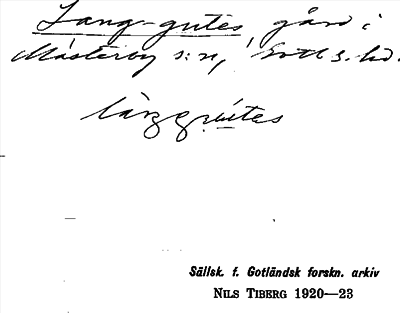 Lang-gutes, gård i
Mästerby s:n, Gotl s. hd.
långgutes
Sällsk. f. Gotländsk forskn. arkiv
NILS TIBERG 1920—23